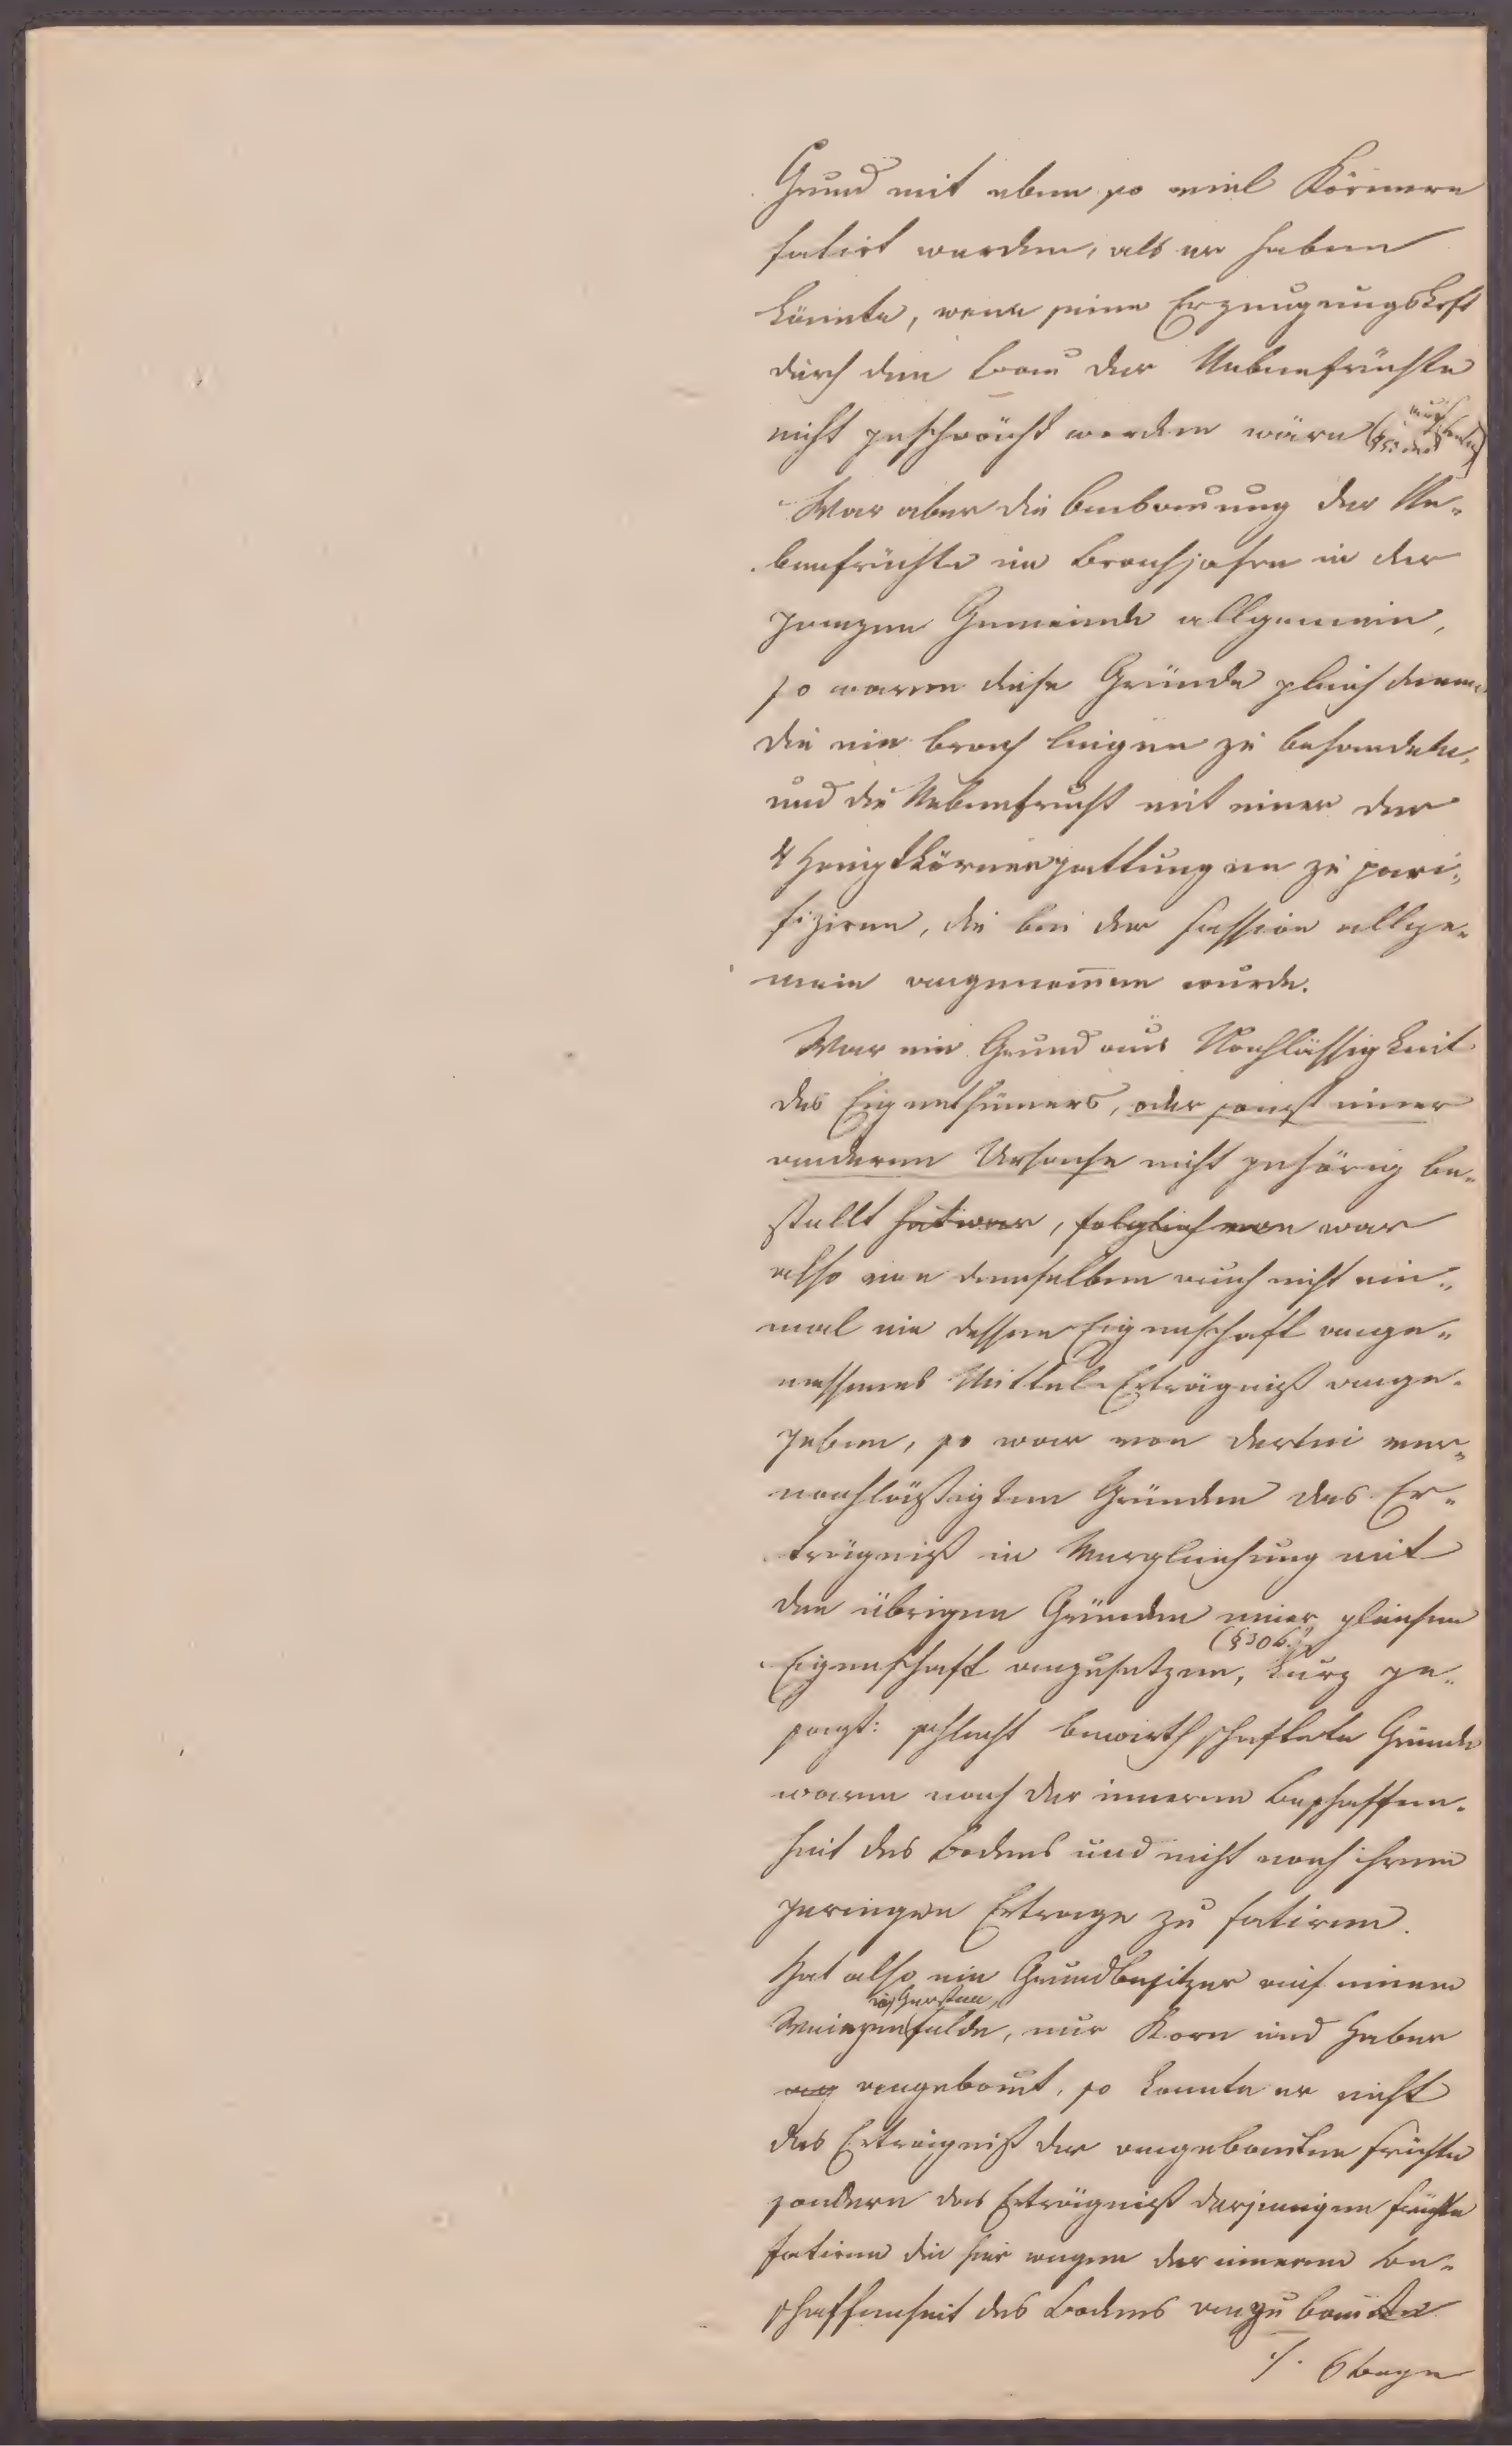 Grund mit eben so viel Körnern
fatirt werden, als er haben
könnte, wenn seine Erzeugungskraft
durch den Bau der Nebenfrüchte
nicht geschwächt worden wäre
War aber die Anbauung der Ne-
benfrüchte im Brachjahre in der
ganzen Gemeinde allgemein,
so waren diese Gründe gleich denen
die nie brach liegen zu behandeln,
und die Nebenfrucht mit einer der
4 Hauptkörnergattungen zu pari-
fiziren, die bei der Fassion allge-
mein angenom̅en wurde.
War ein Grund aus Nachlässigkeit
des Eigenthümers, oder sonst einer
anderen Ursache nicht gehörig be-
stellt hat war, folglich war
also von demselben auch nicht ein-
mal ein dessen Eigenschaft ange-
messenes Mittel-Erträgniß ange-
geben, so war von derlei ver-
nachläßigten Gründen das Er-
trägniß in Vergleichung mit
den übrigen Gründen einer gleichen
(§30b.)
Eigenschaft anzusetzen, kurz ge-
sagt: schlecht bewirthschaftete Gründe
waren nach der inneren Beschaffen-
heit des Bodens und nicht nach ihrem
geringen Ertrage zu fatiren.
Hat also ein Grundbesitzer auf einem
Gersten,
Weizenfelde, nur Korn und Haber
ang angebaut, so konnte er nicht
das Erträgniß der angebauten Früchte
sondern das Erträgniß derjenigen Früchte
fatiren die hier wegen der inneren Be-
schaffenheit des Bodens anzubauen
./. 6 Bogen